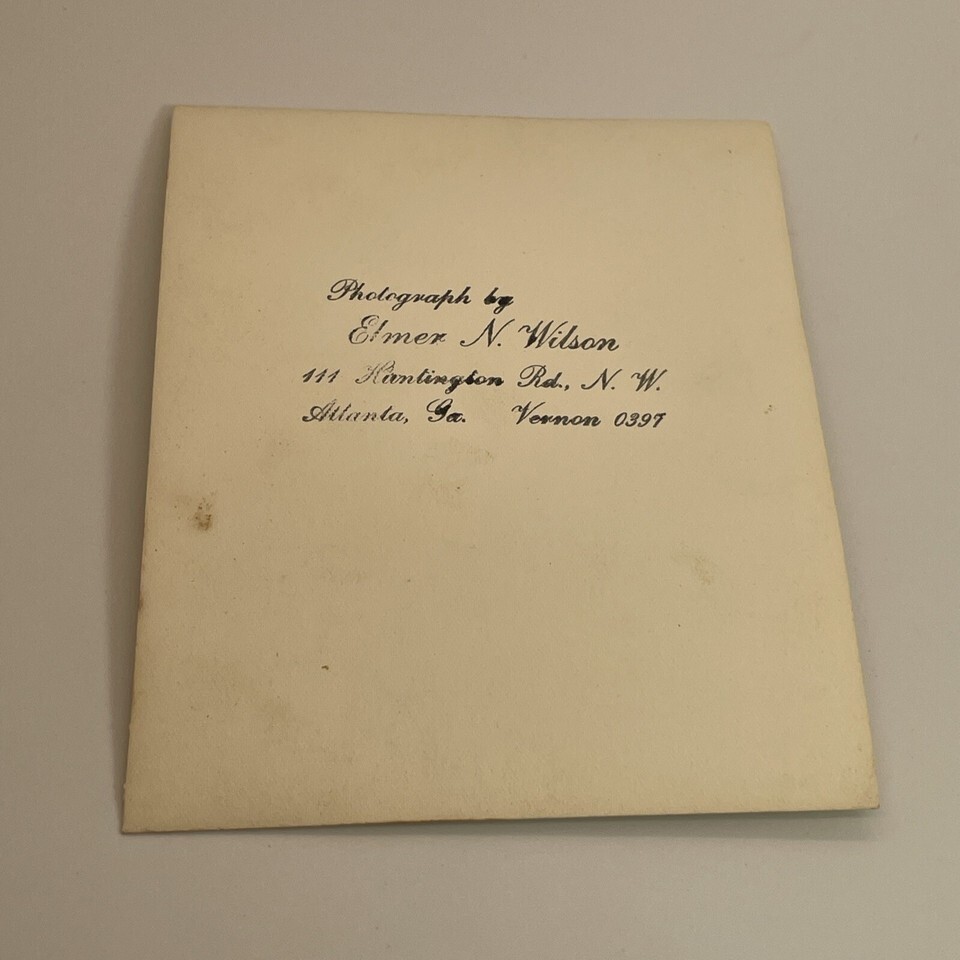 Photograph by
Elmer N. Wilson
111 Huntington Rd., N. W.
Atlanta, Ga. Vernon 0397